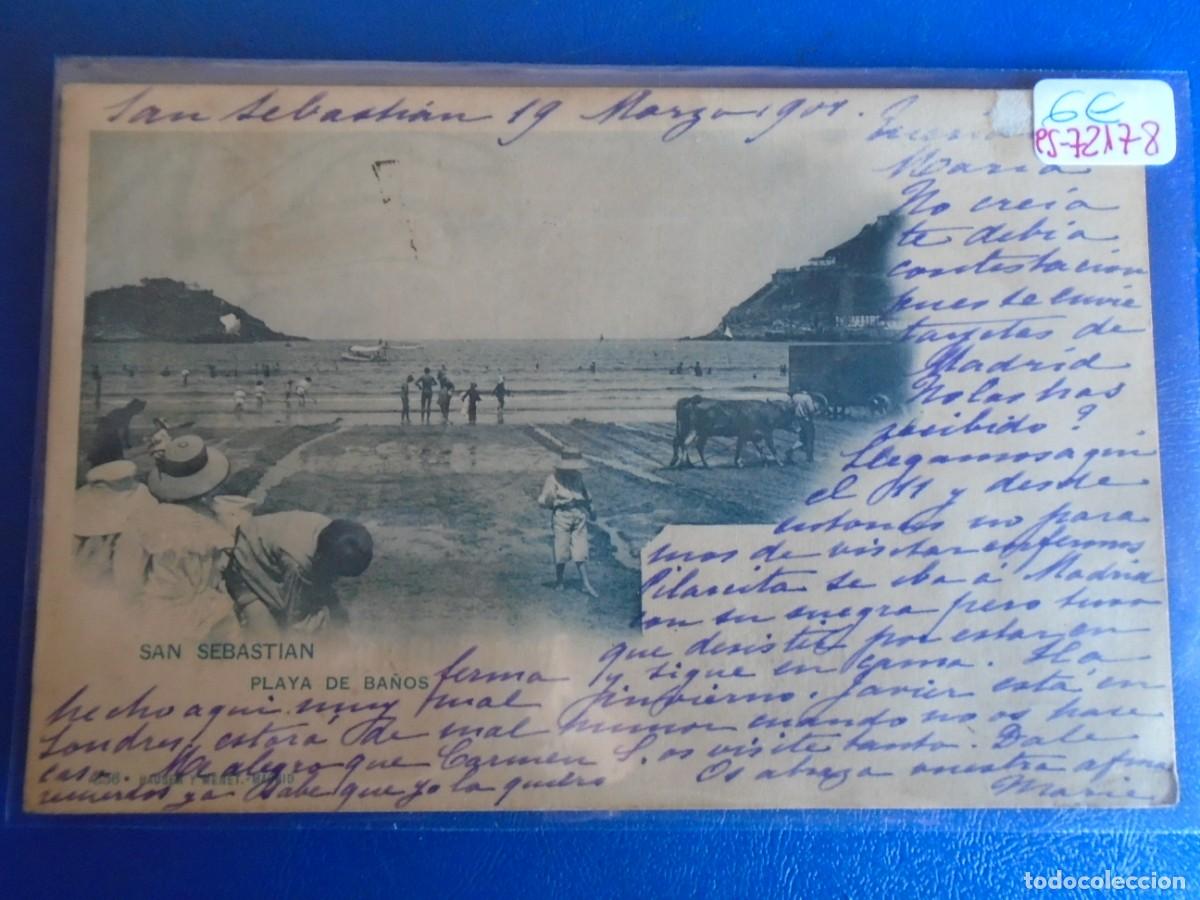 San Sebastián 19 Marzo 1901.
6€
PS-72178
María
No creía
te debía
contestación
pues te envié
tarjetas de
Madrid
No las has
recibido?
Llegamos aqui
el 11 y desde
entonces no para
mos de visitar enfermos
Pilarcita se iba á Madrid
con su suegra pero tuvo
que desistir por estar en
ferma y sigue en cama. Ha
hecho aqui muy mal invierno. Javier está en
Londres, estará de mal humor cuando no os hace
caso. Me alegro que Carmen S. os visite tanto. Dale
recuerdos ya sabe que yo la quiero Os abraza vuestra afma
Marie
SAN SEBASTIAN
PLAYA DE BAÑOS
HAUSER Y MENET.-MADRID
todocoleccion